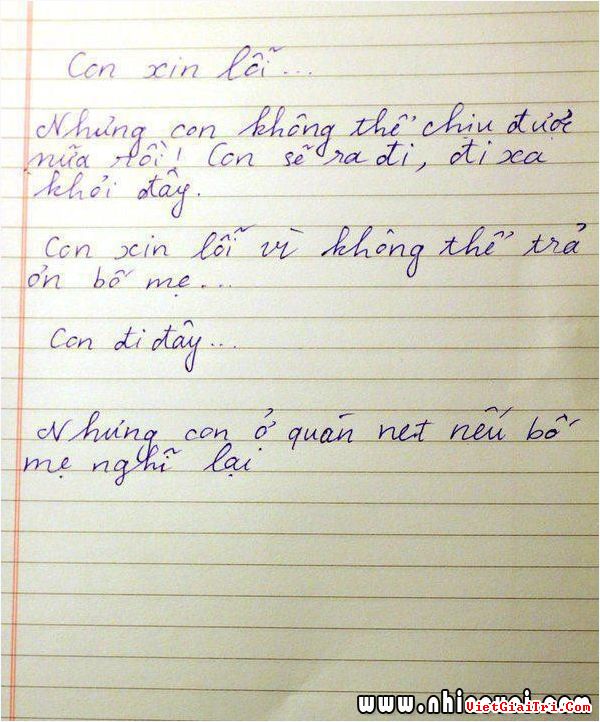 Con xin lỗi...
Nhưng con không thể chịu được
nữa rồi! Con sẽ ra đi, đi xa
khỏi đây.
Con xin lỗi vì không thể trả
ơn bố mẹ...
Con đi đây...
Nhưng con ở quán net nếu bố
mẹ nghĩ lại
VietGiaiTri.Com